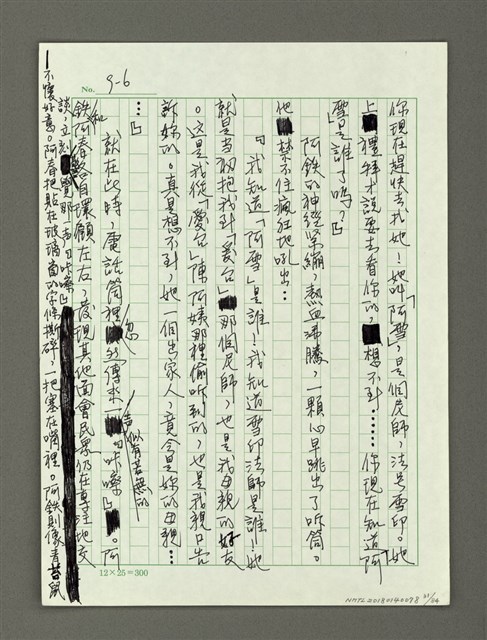 No. 9-6
你現在趕快去找她!她叫「阿雪」,是個尼師,法号雪印。她
上禮拜才說要去看你的,想不到……你現在知道「阿
雪」是誰了嗎?』
阿鉄的神經緊繃,熱血沸騰,一顆心早跳出了听筒。
他禁不住瘋狂地吼出…
『我知道「阿雪」是誰!我知道雪印法師是誰!她
就是当初把我到「爱台」那個尼師,也是我母親的好友
。这是我從「愛台」陳阿姨那裡偷听到的,也是我親口告
訴妳的。真是想不到,她一個出家人,竟会是妳的母親…
…』
就在此時,電話筒裡忽傳來一声似有若無的『咔嚓』。阿
鉄和阿春各自環顧左右,發現其他面會民眾仍在專注地交
談,立刻覺那声『咔嚓』
不懷好意。阿春把貼在玻璃窗的字條撕碎,一把塞在嘴裡。阿鉄則像青苔鼠
12×25=300
NMTL20180140078 21/26